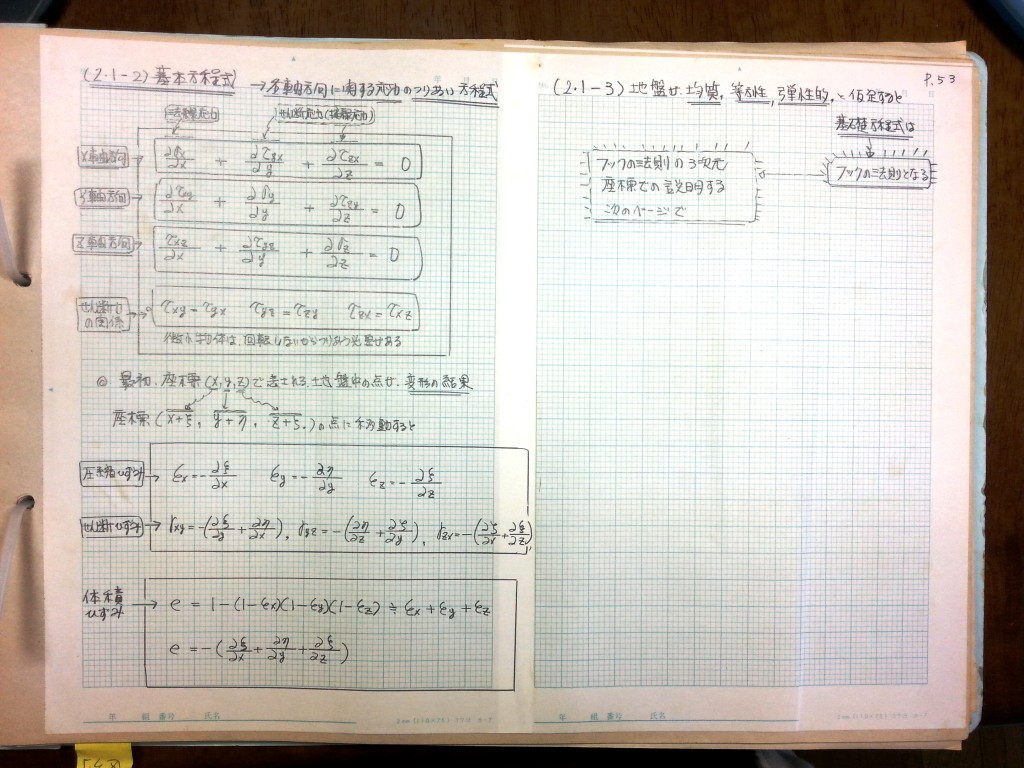 (2・1-2) 基本方程式 → 各軸方向に関する応力のつりあい方程式
法線応力 せん断応力(接線応力)
X軸方向 → ∂σx/∂x + ∂τyx/∂y + ∂τzx/∂z = 0
Y軸方向 → ∂τxy/∂x + ∂σy/∂y + ∂τzy/∂z = 0
Z軸方向 → τxz/∂x + ∂τyz/∂y + ∂σz/∂z = 0
せん断応力の関係 → τxy = τyx τyz = τzy τzx = τxz
微小 は、回転しないからつりあう必要がある
◎ 最初、座標(x,y,z)で表される地盤中の点が、変形の結果
座標(x+ξ, y+η, z+ζ)の点に移動すると
圧縮ひずみ → εx = -∂ξ/∂x εy = -∂η/∂y εz = -∂ζ/∂z
せん断ひずみ → γxy = -(∂ξ/∂y + ∂η/∂x), γyz = -(∂η/∂z + ∂ζ/∂y), γzx = -(∂ζ/∂x + ∂ξ/∂z)
体積ひずみ → e = 1-(1-εx)(1-εy)(1-εz) ≒ εx + εy + εz
e = -(∂ξ/∂x + ∂η/∂y + ∂ξ/∂z)
年 組 番号 氏名
P.53
(2・1-3) 地盤が、均質、等方性、弾性的、と仮定すると
基礎方程式は
フックの法則となる
フックの法則の3次元
座標での説明する
次のページで
年 組 番号 氏名